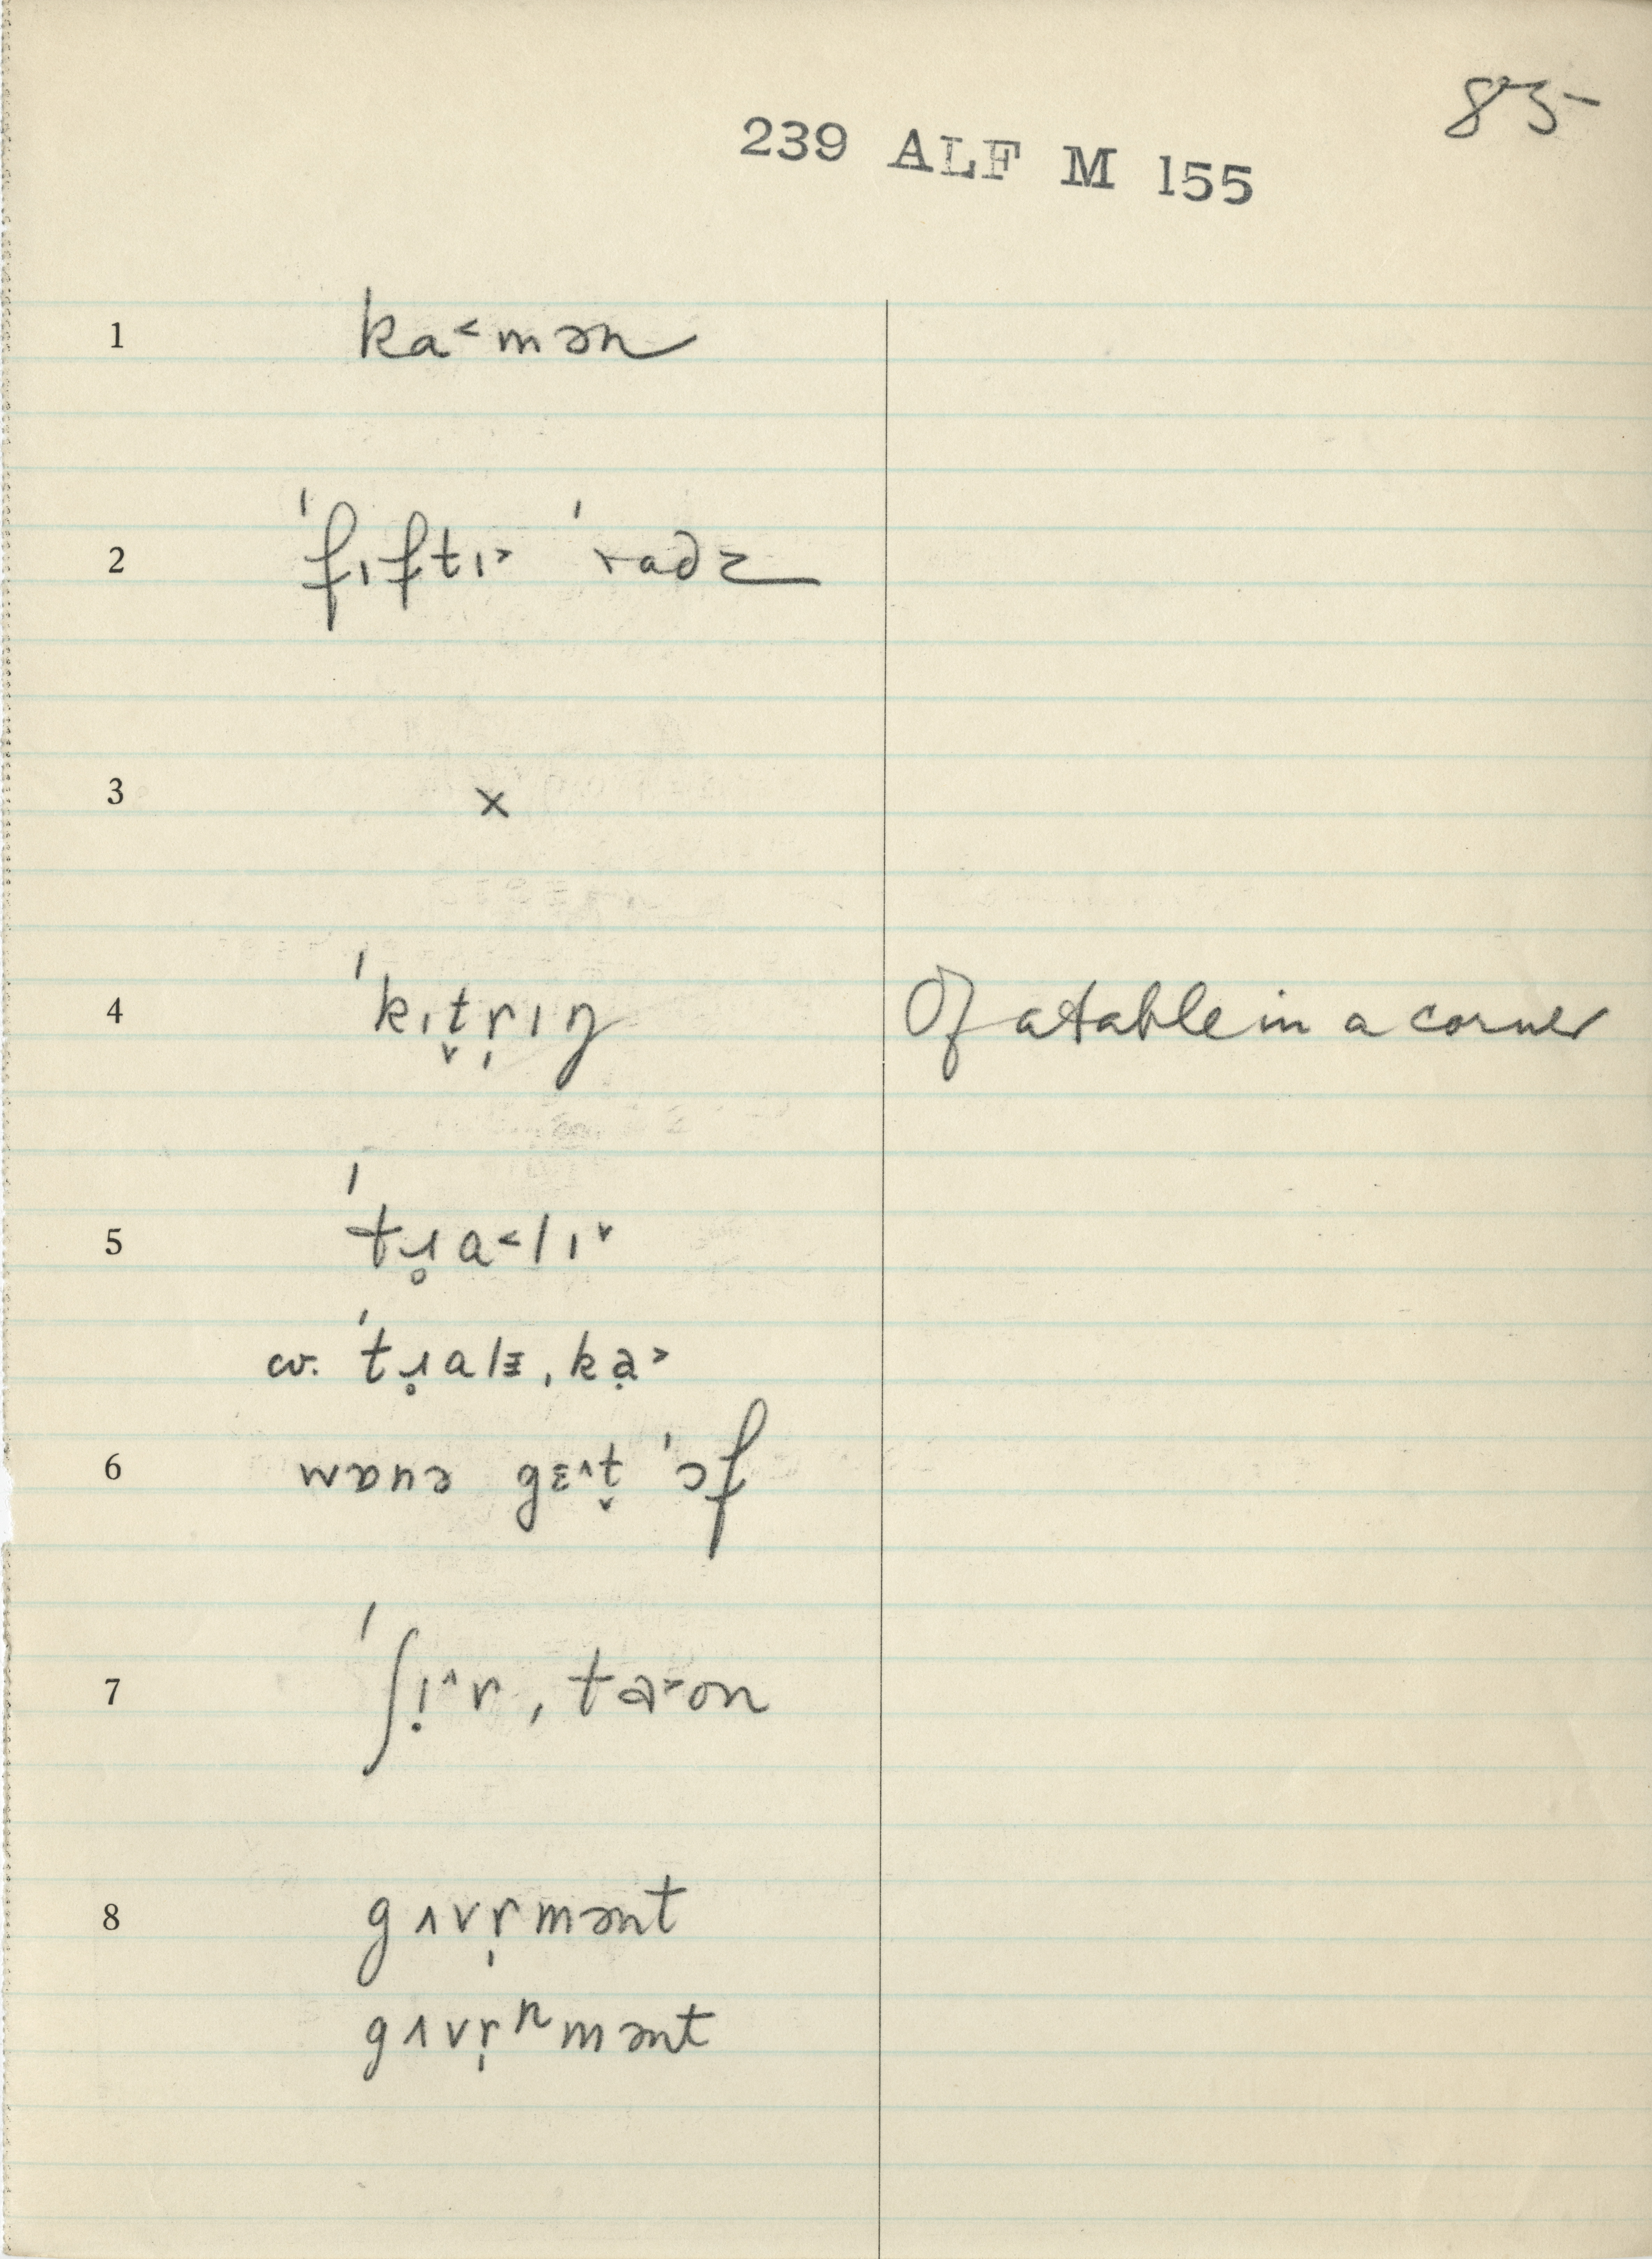 85
239 ALF M 155
1 ka˂mən
2 ˈfɪftɪ˃ ˈradz
3 ×
4 ˈkɪt̬r̩ɪŋ Of a table in a corner
5 ˈtɹ̥a˂lɪ˅
cv. ˈtɹ̥alɪ, kạ˃
6
7 ˈʃɪ̣˄r, ta˃on
8 gʌvr̩mənt
gʌvr̩ⁿmənt